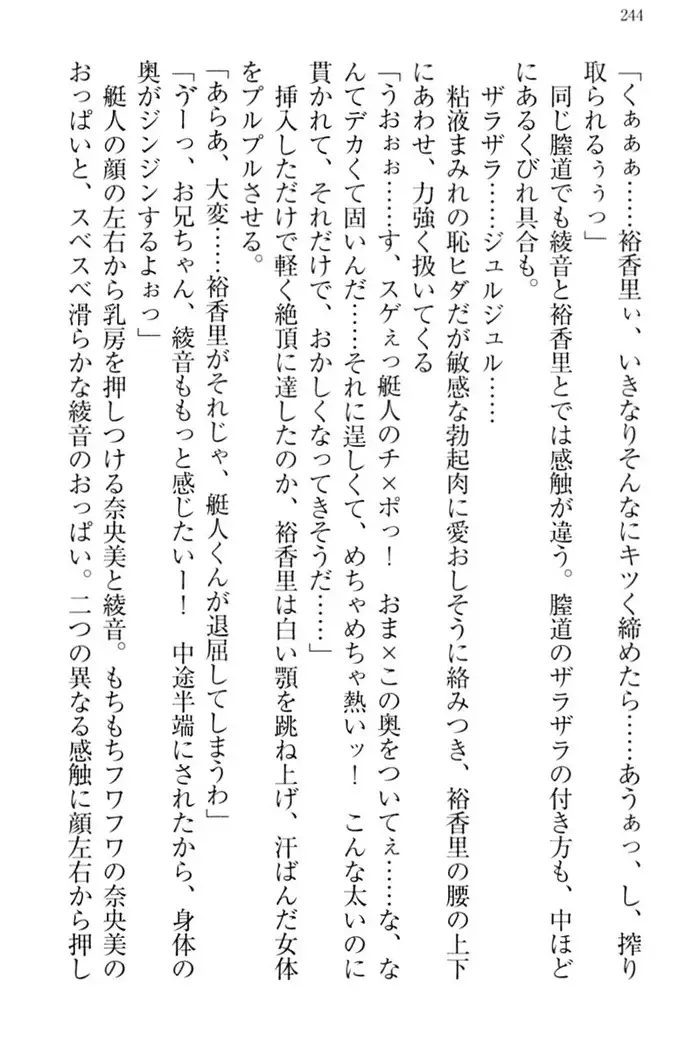 244
「くぁぁぁ……裕香里ぃ、いきなりそんなにキツく締めたら……あうぁっ、し、搾り
取られるぅぅっ」
同じ膣道でも綾音と裕香里とでは感触が違う。膣道のザラザラの付き方も、中ほど
にあるくびれ具合も。
ザラザラ……ジュルジュル……
粘液まみれの恥ヒダだが敏感な勃起肉に愛おしそうに絡みつき、裕香里の腰の上下
にあわせ、力強く扱いてくる
「うおぉぉ……す、スゲぇっ艇人のチ×ポっ！　おま×この奥をついてぇ……な、な
んてデカくて固いんだ……それに逞しくて、めちゃめちゃ熱いッ！　こんな太いのに
貫かれて、それだけで、おかしくなってきそうだ……」
挿入しただけで軽く絶頂に達したのか、裕香里は白い顎を跳ね上げ、汗ばんだ女体
をプルプルさせる。
「あらあ、大変……裕香里がそれじゃ、艇人くんが退屈してしまうわ」
「ゔーっ、お兄ちゃん、綾音ももっと感じたいー！　中途半端にされたから、身体の
奥がジンジンするよぉっ」
艇人の顔の左右から乳房を押しつける奈央美と綾音。もちもちフワフワの奈央美の
おっぱいと、スベスベ滑らかな綾音のおっぱい。二つの異なる感触に顔左右から押し